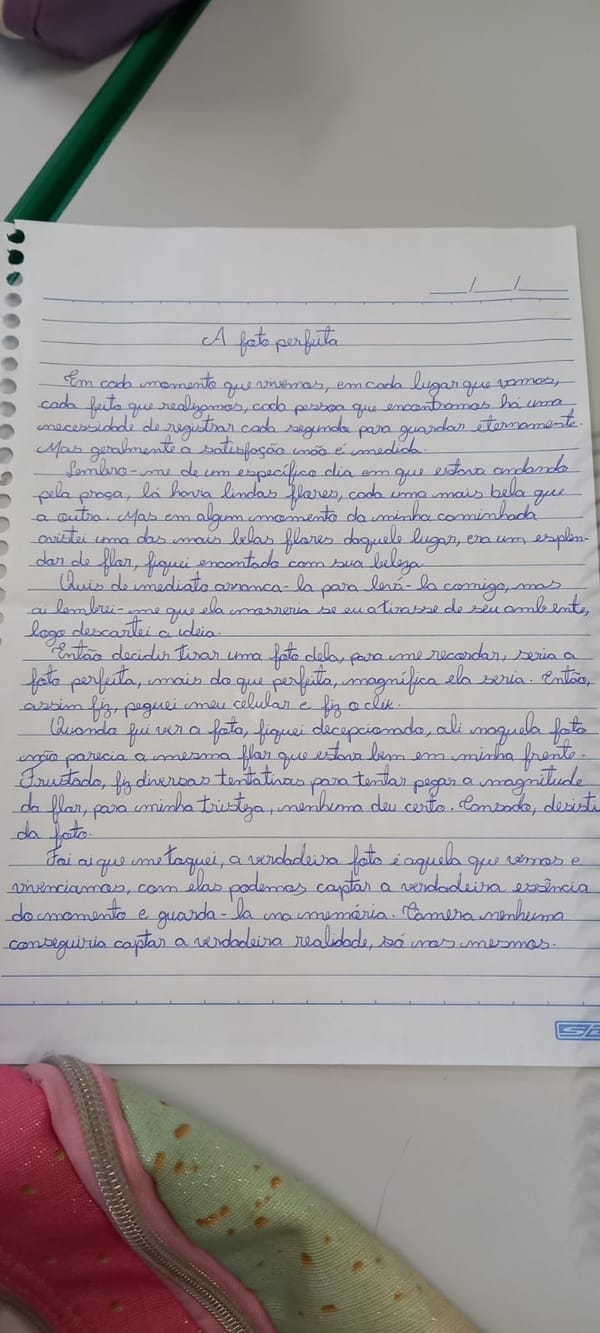 A foto perfeita
Em cada momento que vivemos, em cada lugar que vamos,
cada feito que realizamos, cada pessoa que encontramos há uma
necessidade de registrar cada segundo para guardar eternamente.
Mas geralmente a satisfação não é medida.
Lembro-me de um específico dia em que estava andando
pela praça, lá havia lindas flores, cada uma mais bela que
a outra. Mas em algum momento da minha caminhada
avistei uma das mais belas flores daquele lugar, era um esplen-
dor de flor, fiquei encantado com sua beleza
Quis de imediato arranca-la para levá-la comigo, mas
ai lembrei-me que ela morreria se eu a tirasse de seu ambiente,
logo descartei a ideia.
Então decidir tirar uma foto dela, para me recordar, seria a
foto perfeita, mais do que perfeita, magnífica ela seria. Então,
assim fiz, peguei meu celular e fiz o clik.
Quando fui ver a foto, fiquei decepcionado, ali naquela foto
não parecia a mesma flor que estava bem em minha frente.
Frustado, fiz diversas tentativas para tentar pegar a magnitude
da flor, para minha tristeza, nenhuma deu certo. Cansado, desisti
da foto.
Foi ai que me toquei, a verdadeira foto é aquela que vemos e
vivenciamos, com elas podemos captar a verdadeira essência
do momento e guarda-la na memória. Camera nenhuma
conseguiria captar a verdadeira realidade, só nos mesmos.